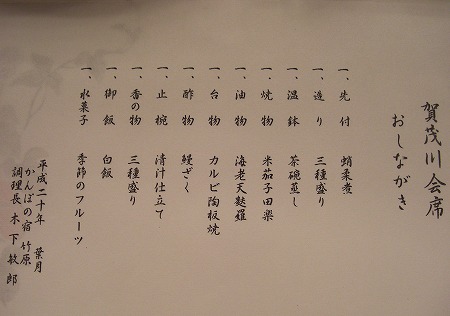 賀茂川会席
おしながき
一、先付 蛸柔煮
一、造り 三種盛り
一、温鉢 茶碗蒸し
一、焼物 米茄子田楽
一、油物 海老天麩羅
一、台物 カルビ陶板焼
一、酢物 鰻ざく
一、止椀 清汁仕立て
一、香の物 三種盛り
一、御飯 白飯
一、水菓子 季節のフルーツ
平成二十年 葉月
かんぽの宿 竹原
調理長 木下敏郎